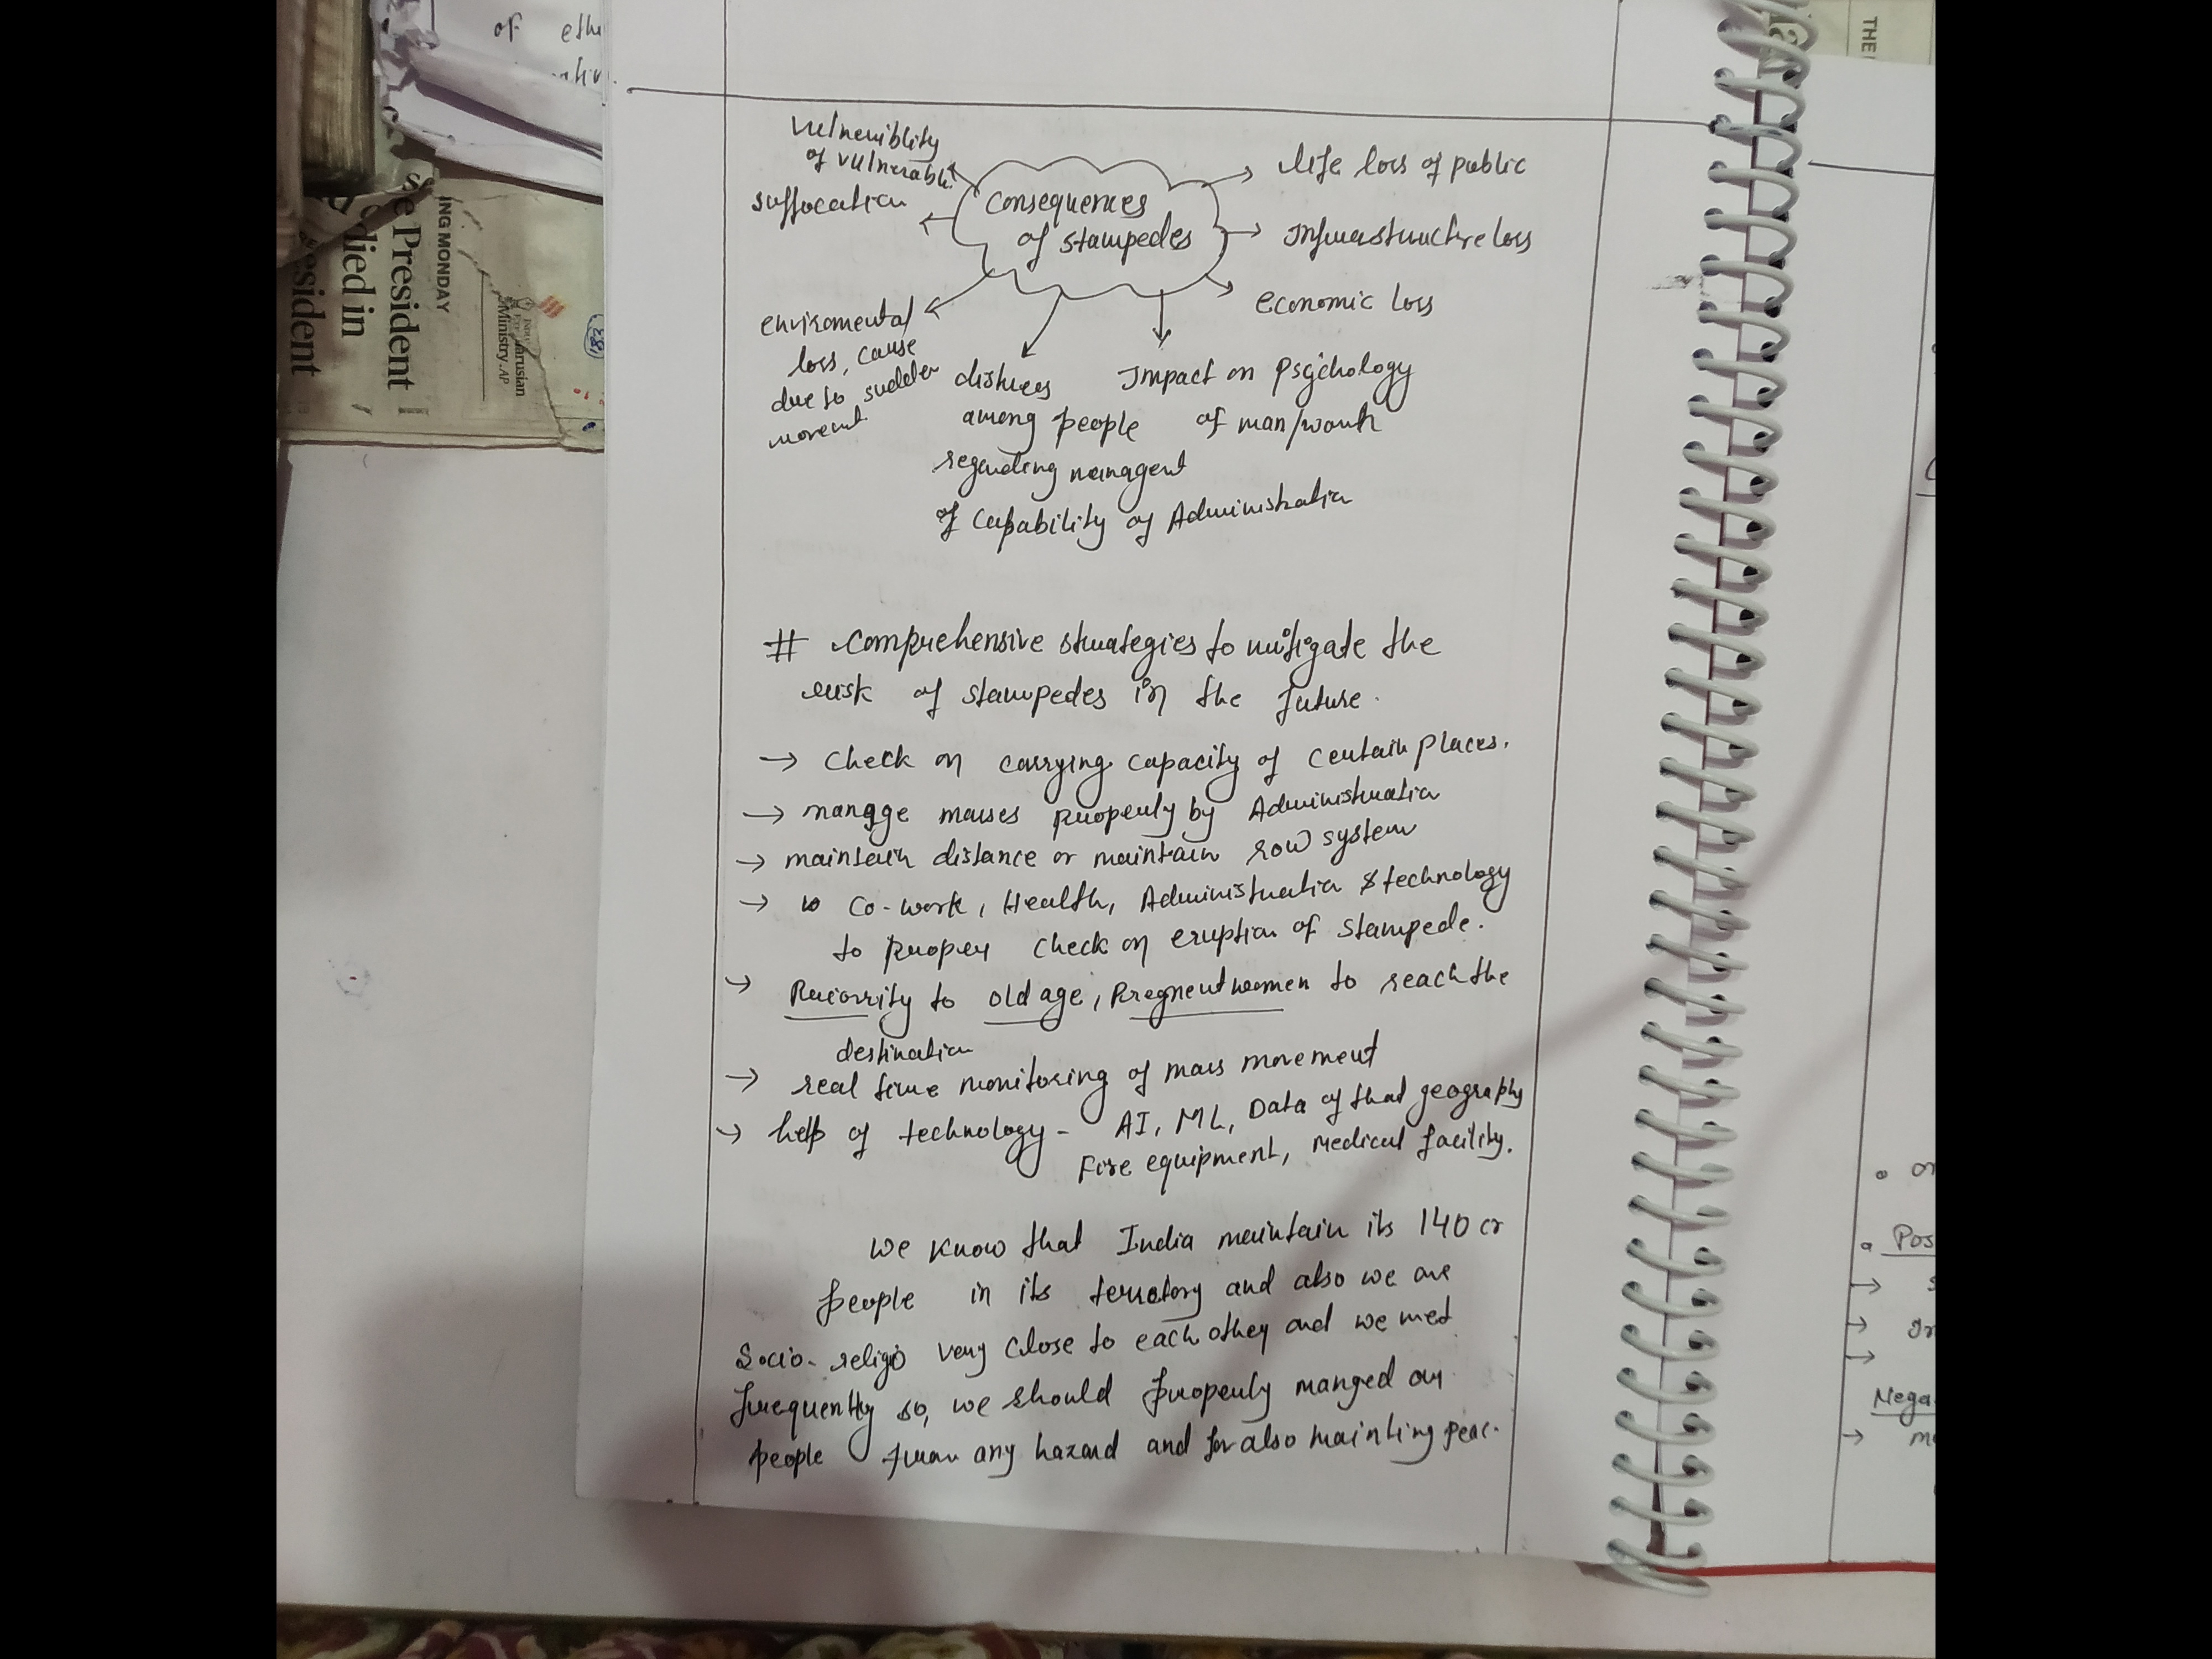 of
THE
ING MONDAY
se President
died in
esident
Ministry. AP
arusian
vulneriblity
of vulnerable
suffocation
Consequences
of stampedes
life loss of public
Infrastructure loss
economic loss
enviromental
loss, cause
due to sudden
movemt
distrees
among people
regarding managent
of Capability of Administration
Impact on Psychology
of man/womh
# comprehensive strategies to mitigate the
risk of stampedes in the future.
→ Check on carrying capacity of certain places.
→ manage masses properly by Administration
→ maintain distance or maintain row system
→ Co-work, Health, Administration & technology
to proper check on eruption of stampede.
→ Priority to old age, Pregnent women to reach the
destination
→ real time monitoring of mass movement
→ help of technology - AI, ML, Data of that geography
Fire equipment, medical facility.
we know that India maintain its 140 cr
people in its terretory and also we are
Socio-religio very close to each other and we met
frequently so, we should properly manged our
people from any hazard and for also mainting peac.
Pos
Nega